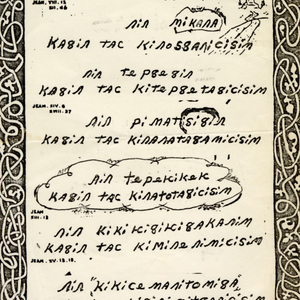 JEAN. VIII. 12
XII. 46
ΛIΛ MIKANA
KAGIΛ TAC KIΛOSGANICISIM
ΛIΛ TEPGEGIΛ
KAGIΛ TAC KITEPGETAGICISIM
JEAN. XIV. 6
XVIII. 37
ΛIΛ PIMATISIGIΛ
KAGIΛ TAC KIΛAΛATAGAMICISIM
ΛIΛ TEPEKIKEK
KAGIΛ TAC KIΛATOTAGICISIM
JEAN
XIII. 13
ΛIΛ KIKIKIGIKIGAKANIM
KAGIΛ TAC KIMINENIMICISIM
JEAN. XV. 12. 15.
ΛIΛ "KIKICEMANITOMIGA,"